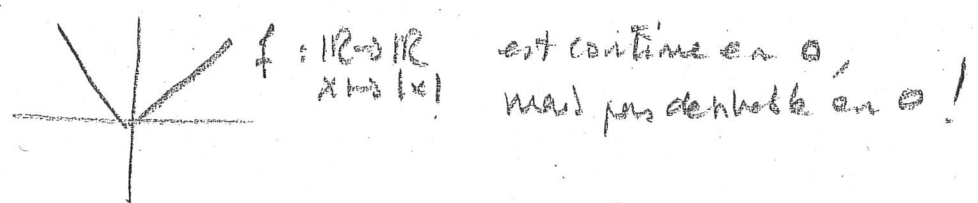 f : ℝ → ℝ est continue en 0,
x ↦ |x| mais pas dérivable en 0 !